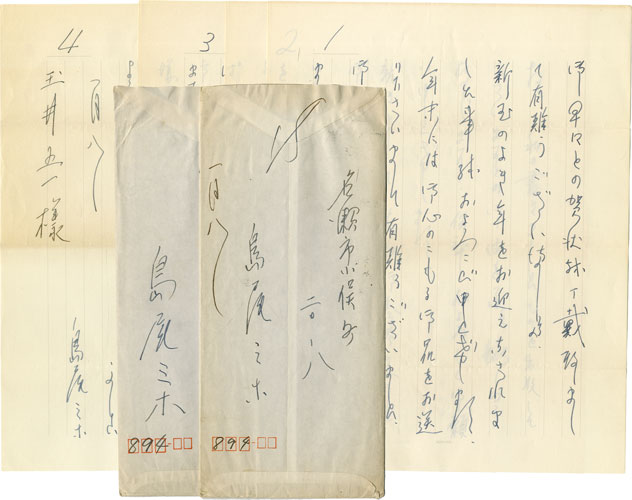 1
御早々との賀状頂戴致しまし
て有難うございました。
新玉のよき年をお迎え
およろこび申し上げます。
年末には御心のこもる御品をお送
り下さいまして有難うございました。
2
3
4
一月八日
玉井五一様
かしこ
島尾ミホ
名瀬市小俣町
二〇ノ八
一月八日
島尾ミホ
894
島尾ミホ
894